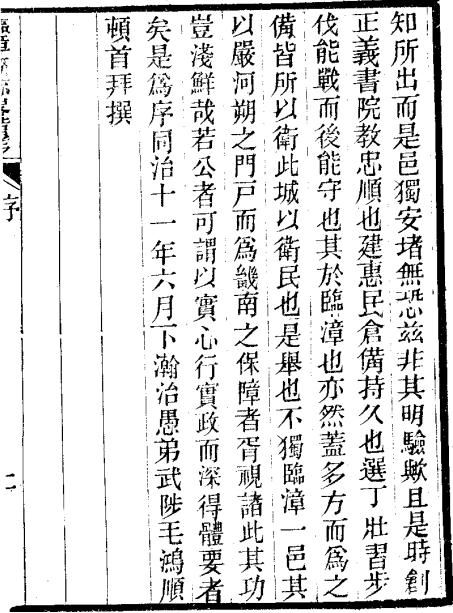 知所出而是邑獨安堵無恐茲非其明驗歟且是時創
正義書院教忠順也建惠民倉備持久也選丁壯習步
伐能戰而後能守也其於臨漳也亦然蓋多方而爲之
備皆所以衛此城以衛民也是舉也不獨臨漳一邑其
以嚴河朔之門戸而爲畿南之保障者胥視諸此其功
豈淺鮮哉若公者可謂以實心行實政而深得體要者
矣是爲序同治十一年六月下瀚治愚弟武陟毛鴻順
頓首拜撰
序
二